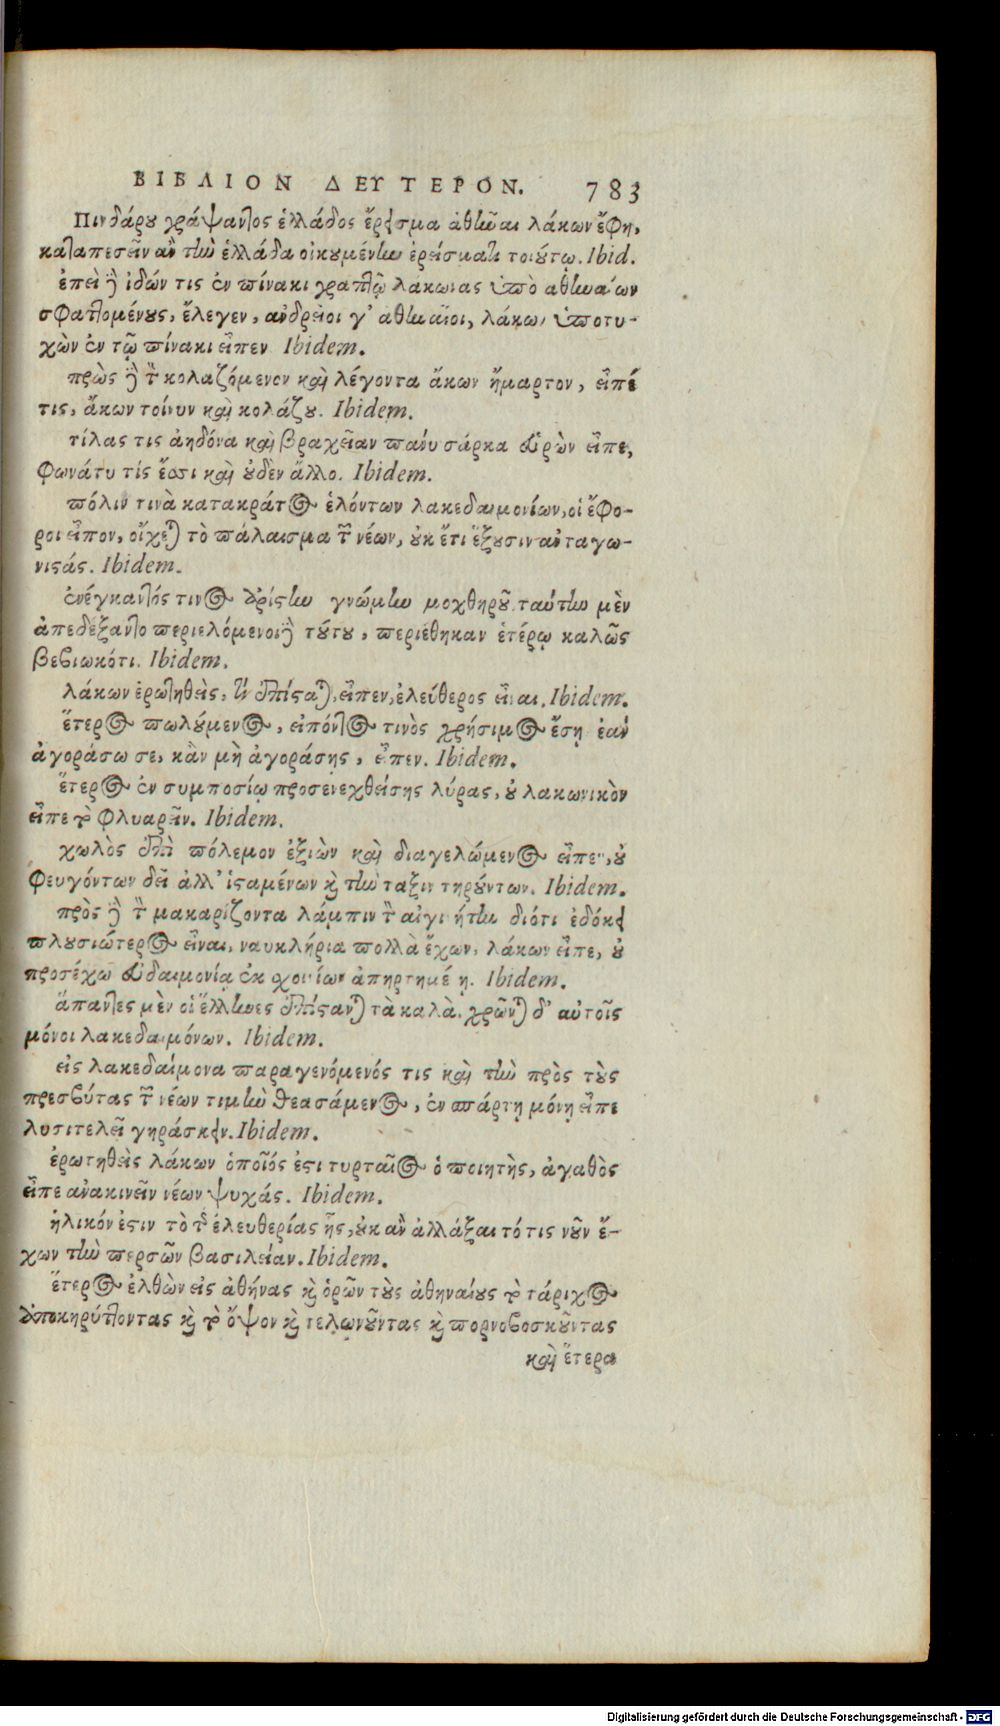 ΒΙΒΛΙΟΝ ΔΕΥΤΕΡΟΝ. 783
Πινδάρου γράψαντος ἑλλάδος ἔρεισμα ἀθῆναι λάκων ἔφη,
καταπεσεῖν ἂν τὴν ἑλλάδα οἰκουμένην ἐρείσματι τοιούτῳ. Ibid.
ἐπεὶ δὲ ἰδών τις ἐν πίνακι γραπτῷ λάκωνας ὑπὸ ἀθηναίων
σφαττομένους, ἔλεγεν, ἀνδρεῖοι γ' ἀθηναῖοι, λάκων ὑποτυ-
χὼν ἐν τῷ πίνακι εἶπεν Ibidem.
πρὼς δὲ τὸν κολαζόμενον καὶ λέγοντα ἄκων ἥμαρτον, εἶπέ
τις, ἄκων τοίνυν καὶ κολάζου. Ibidem.
τίλας τις ἀηδόνα καὶ βραχεῖαν πάνυ σάρκα εὑρὼν εἶπε,
φωνάτυ τίς ἔσσι καὶ οὐδὲν ἄλλο. Ibidem.
πόλιν τινὰ κατακράτος ἑλόντων λακεδαιμονίων, οἱ ἔφο-
ροι εἶπον, οἴχεται τὸ πάλαισμα τῶν νέων, οὐκ ἔτι ἕξουσιν ἀνταγω-
νιστάς. Ibidem.
ἐνέγκαντός τινος ἀρίστην γνώμην μοχθηροῦ ταύτην μὲν
ἀπεδέξαντο περιελόμενοι δὲ τούτου, περιέθηκαν ἑτέρῳ καλῶς
βεβιωκότι. Ibidem.
λάκων ἐρωτηθεὶς, τί ἐπίσταται, εἶπεν, ἐλεύθερος εἶναι. Ibidem.
ἕτερος πωλούμενος, εἰπόντος τινὸς χρήσιμος ἔσῃ ἐὰν
ἀγοράσω σε, κἂν μὴ ἀγοράσῃς, εἶπεν. Ibidem.
ἕτερος ἐν συμποσίῳ προσενεχθείσης λύρας, οὐ λακωνικὸν
εἶπε τὸ φλυαρεῖν. Ibidem.
χωλὸς ἐπὶ πόλεμον ἐξιὼν καὶ διαγελώμενος εἶπεν, οὐ
φευγόντων δεῖ ἀλλ' ἱσταμένων καὶ τὴν τάξιν τηρούντων. Ibidem.
πρὸς δὲ τὸν μακαρίζοντα λάμπιν τὸν αἰγινήτην διότι ἐδόκει
πλουσιώτερος εἶναι, ναυκλήρια πολλὰ ἔχων, λάκων εἶπε, οὐ
προσέχω εὐδαιμονίᾳ ἐκ σχοινίων ἀπηρτημένῃ. Ibidem.
ἅπαντες μὲν οἱ ἕλληνες ἐπίστανται τὰ καλὰ. χρῶνται δ' αὐτοῖς
μόνοι λακεδαιμόνων. Ibidem.
εἰς λακεδαίμονα παραγενόμενός τις καὶ τὴν πρὸς τοὺς
πρεσβύτας τῶν νέων τιμὴν θεασάμενος, ἐν σπάρτῃ μόνῃ εἶπε
λυσιτελεῖ γηράσκειν. Ibidem.
ἐρωτηθεὶς λάκων ὁποῖός ἐστι τυρταῖος ὁ ποιητὴς, ἀγαθὸς
εἶπε ἀνακινεῖν νέων ψυχάς. Ibidem.
ἡλικόν ἐστιν τὸ τῆς ἐλευθερίας ἧς, οὐκ ἂν ἀλλάξαιτό τις νῦν ἔ-
χων τὴν περσῶν βασιλείαν. Ibidem.
ἕτερος ἐλθὼν εἰς ἀθήνας καὶ ὁρῶν τοὺς ἀθηναίους τὸ τάριχος
ἀποκηρύττοντας καὶ τὸ ὄψον καὶ τελωνοῦντας καὶ πορνοβοσκοῦντας
καὶ ἕτερα
Digitalisierung gefördert durch die Deutsche Forschungsgemeinschaft - DFG